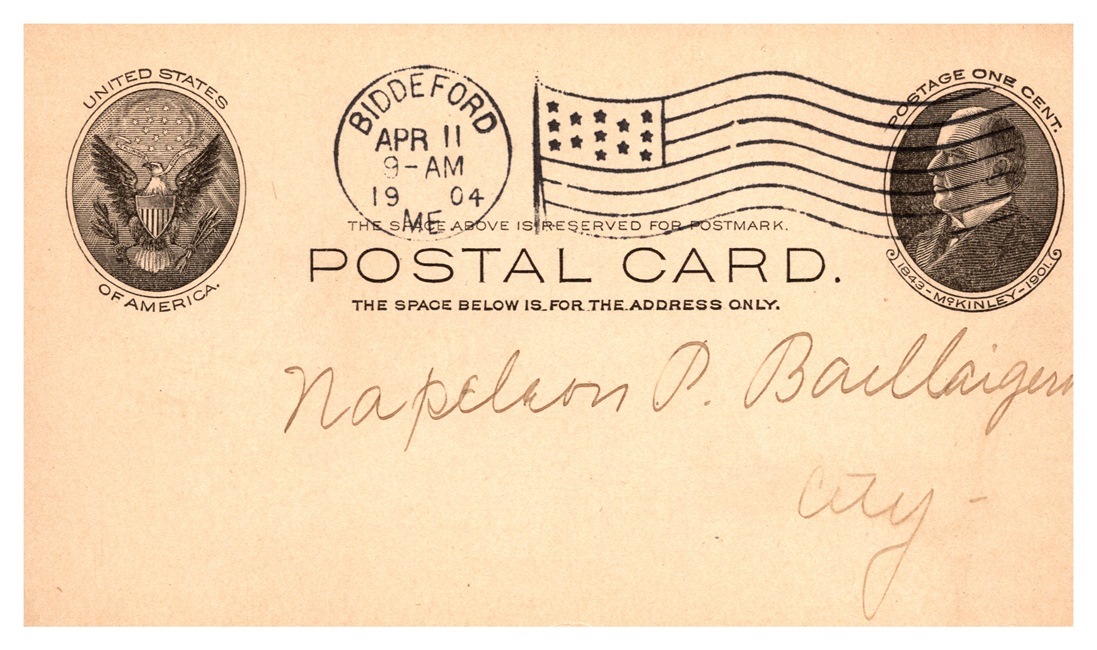 UNITED STATES
OF AMERICA.
BIDDEFORD
APR 11
9-AM
1904
ME
POSTAGE ONE CENT.
1843-McKINLEY-1901
THE SPACE ABOVE IS RESERVED FOR POSTMARK.
POSTAL CARD.
THE SPACE BELOW IS FOR THE ADDRESS ONLY.
Napoleon P.
City -